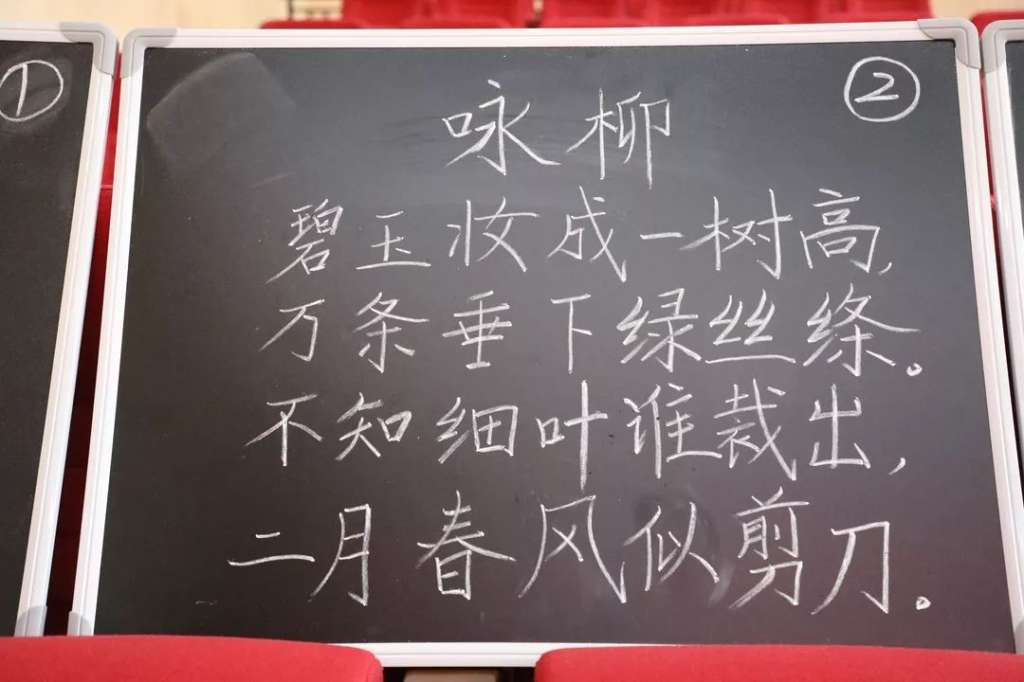 ①
②
咏柳
碧玉妆成一树高,
万条垂下绿丝绦。
不知细叶谁裁出,
二月春风似剪刀.